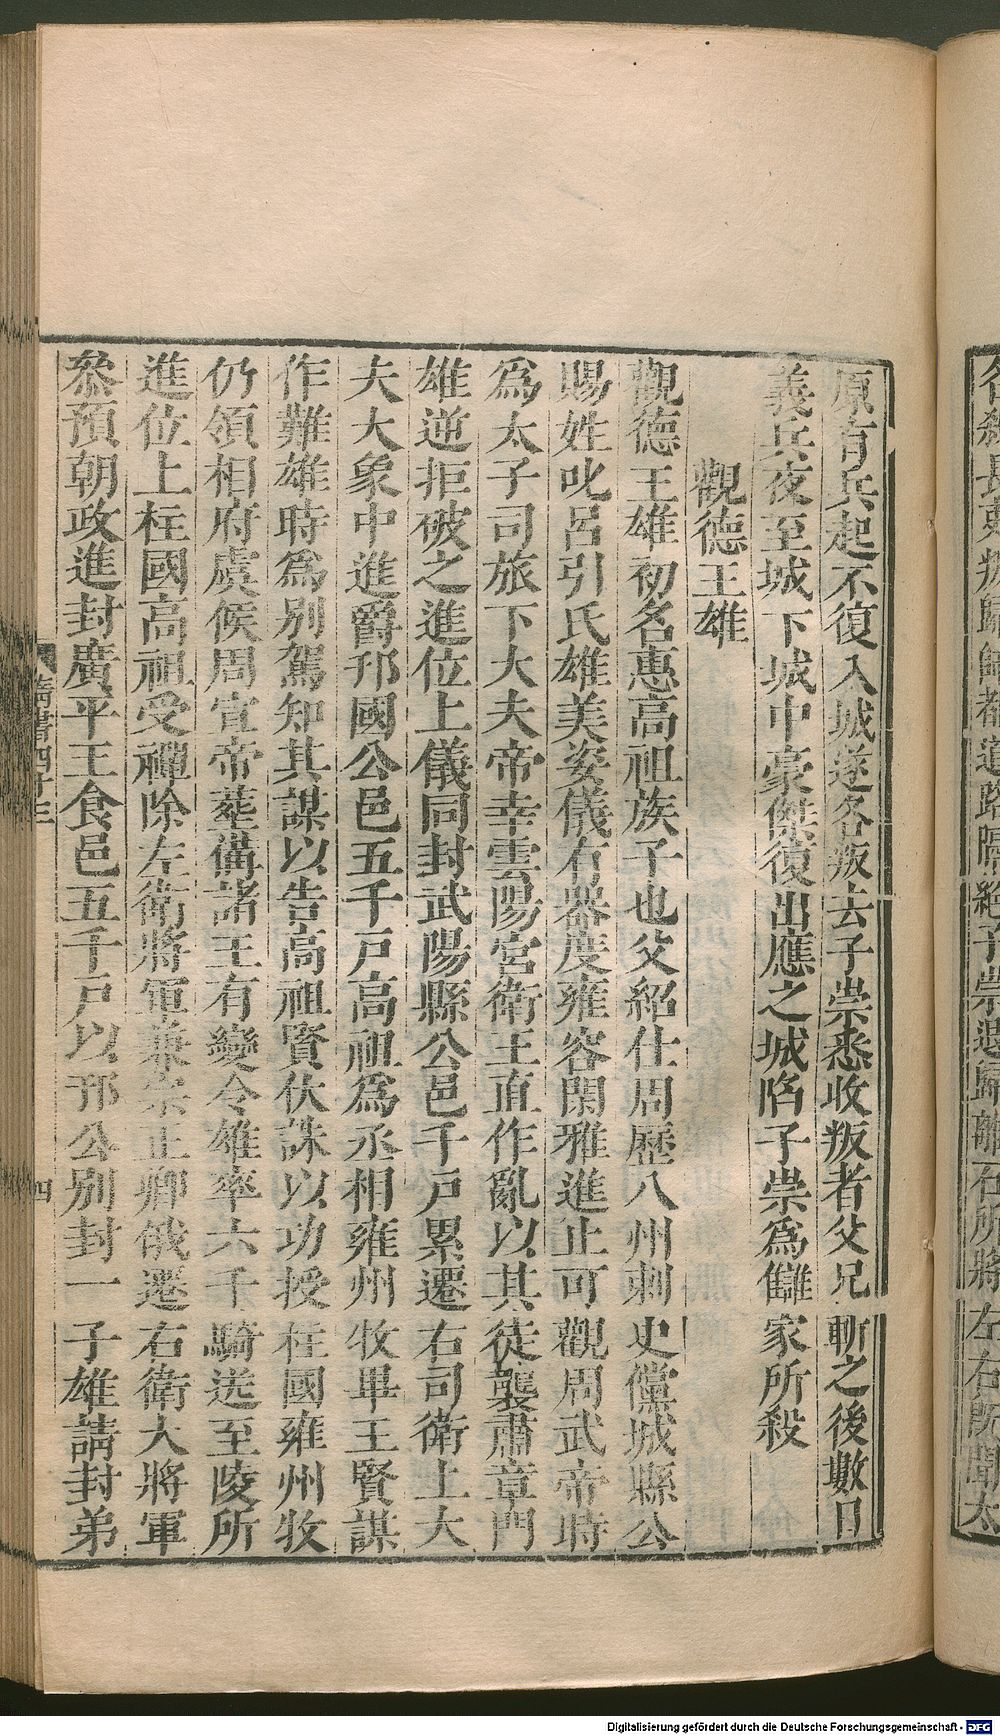 原有兵起不復入城遂各叛去子崇悉收叛者父兄斬之後數日
義兵夜至城下城中豪傑復出應之城陷子崇爲讎家所殺
觀德王雄
觀德王雄初名惠高祖族子也父紹仕周歷八州刺史儻城縣公
賜姓叱呂引氏雄美姿儀有器度雍容閑雅進止可觀周武帝時
爲太子司旅下大夫帝幸雲陽宮衛王直作亂以其徒襲肅章門
雄逆拒破之進位上儀同封武陽縣公邑千戸累遷右司衛上大
夫大象中進爵邘國公邑五千戸高祖爲丞相雍州牧畢王賢謀
作難雄時爲別駕知其謀以告高祖賢伏誅以功授柱國雍州牧
仍領相府虞候周宣帝葬備諸王有變令雄率六千騎送至陵所
進位上柱國高祖受禪除左衛將軍兼宗正卿俄遷右衛大將軍
叅預朝政進封廣平王食邑五千戸以邘公別封一子雄請封弟
隋書四十三
四
左右既聞太
Digitalisierung gefördert durch die Deutsche Forschungsgemeinschaft - DFG